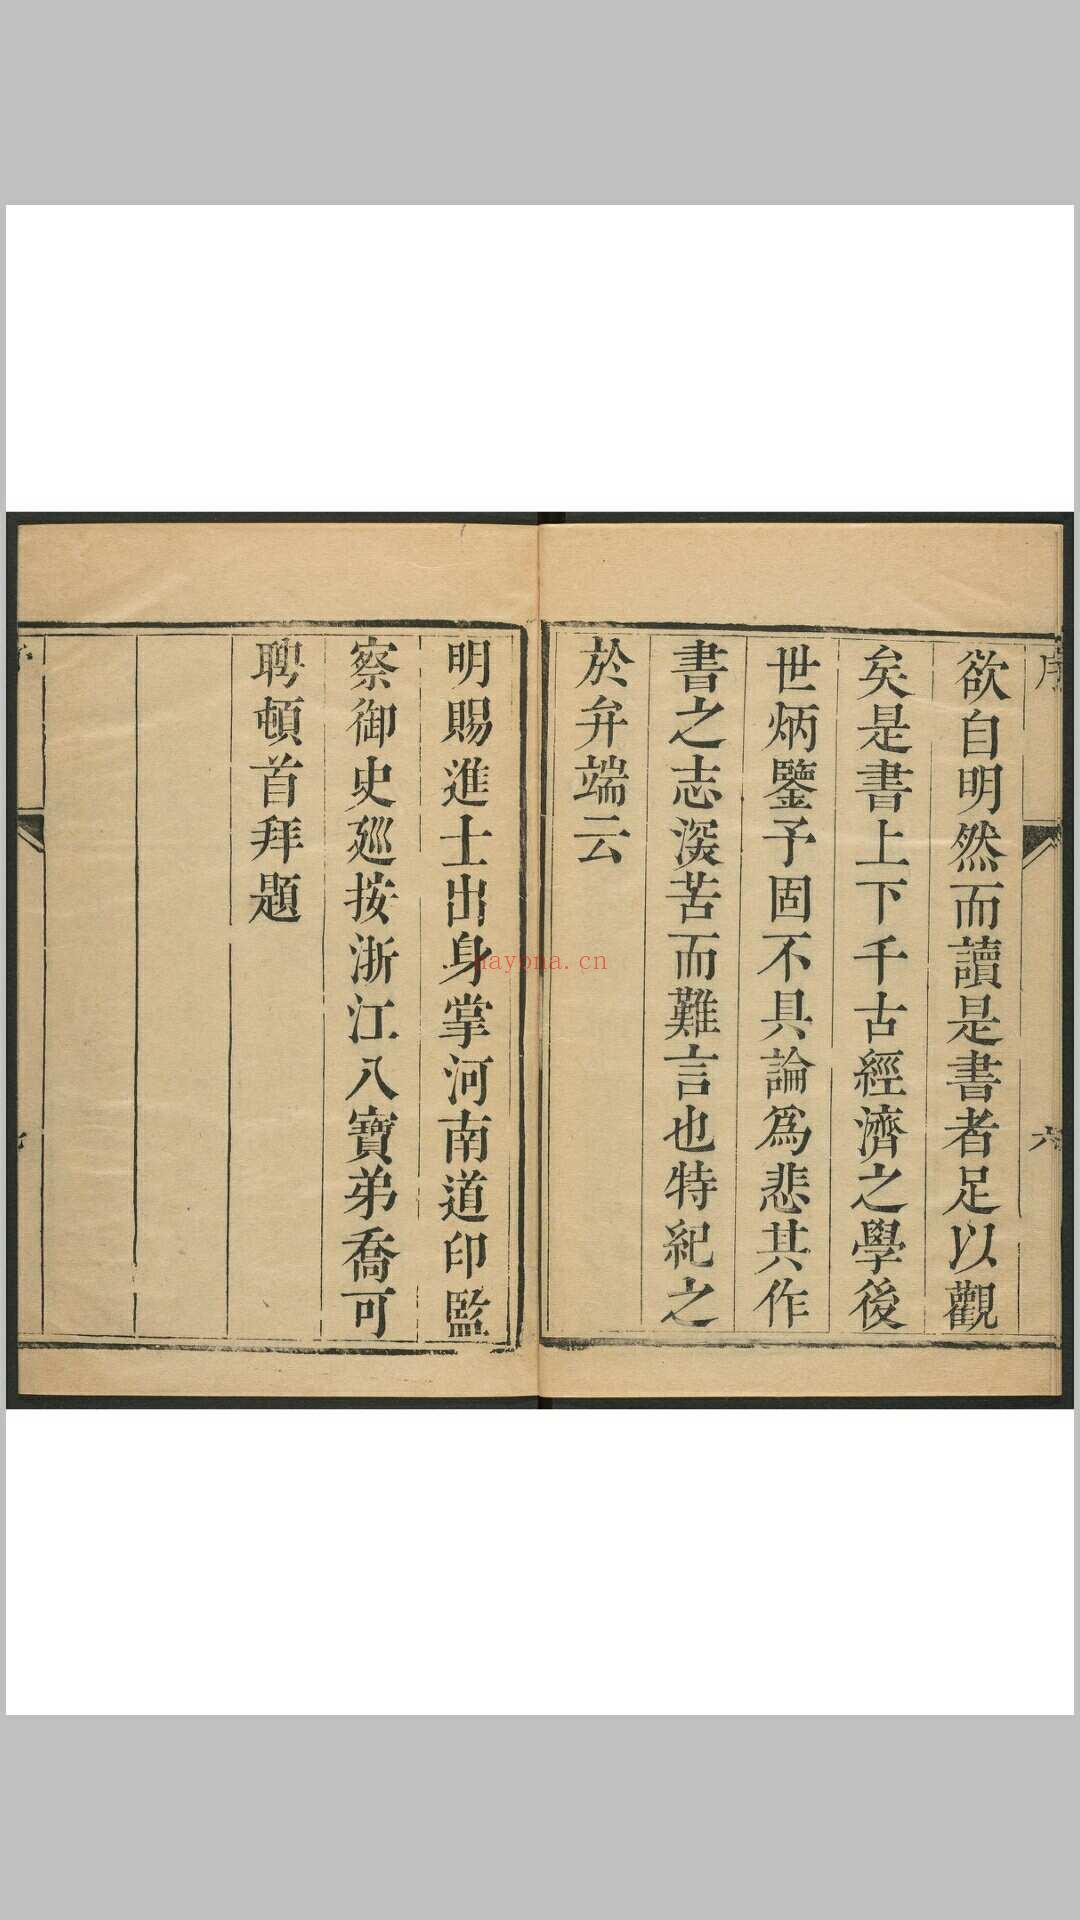 序
六
欲自明然而讀是書者足以觀
矣是書上下千古經濟之學後
世炳鑒予固不具論為悲其作
書之志深苦而難言也特紀之
於弁端云
明賜進士出身掌河南道印監
察御史廵按浙江八寶弟喬可
聘頓首拜題
nayona.cn